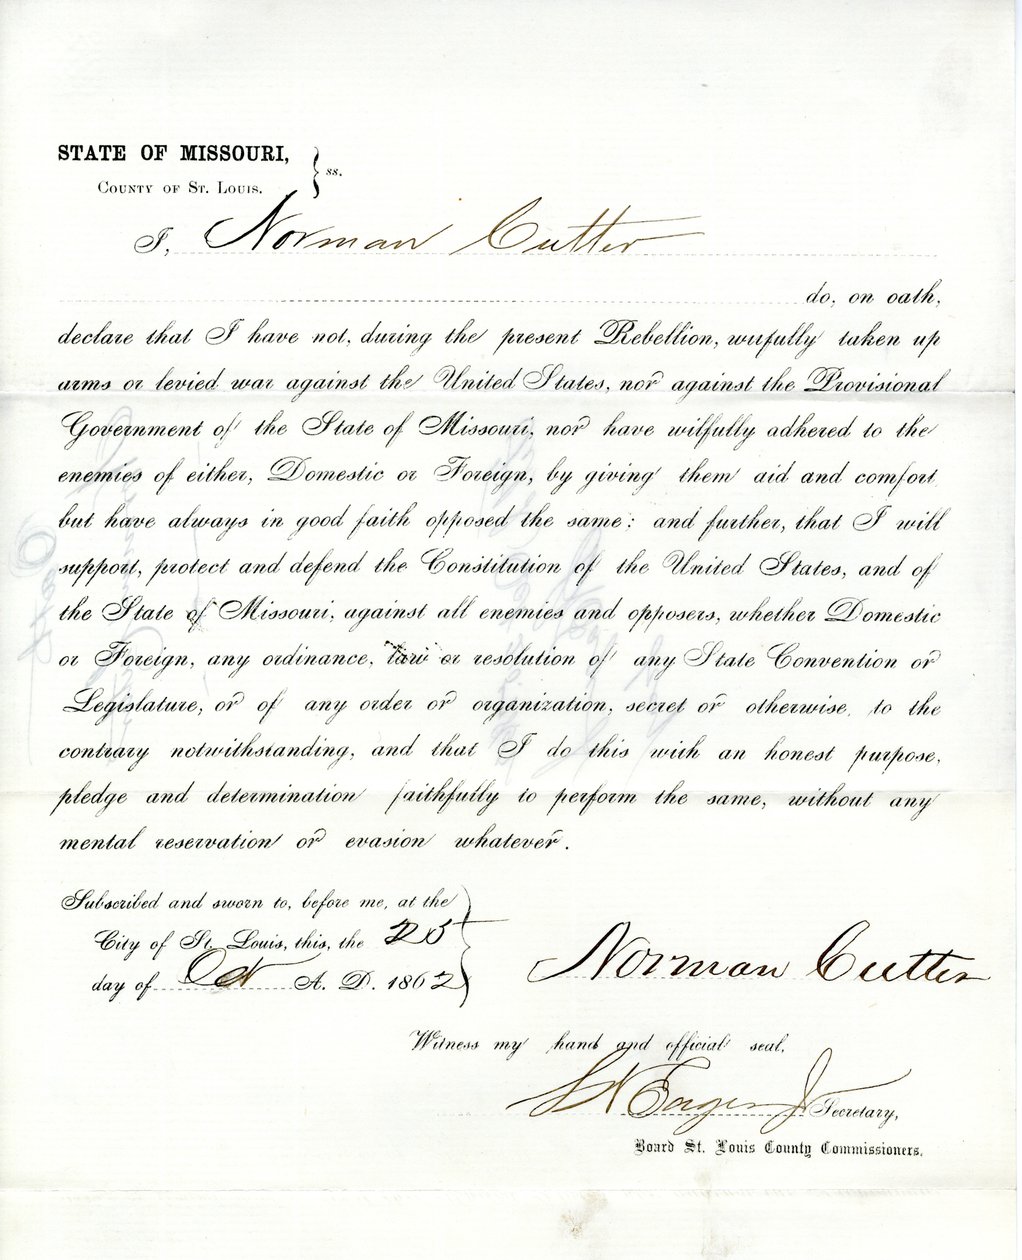 STATE OF MISSOURI,
County of St. Louis. } ss.
I, Norman Cutter
do, on oath,
declare that I have not, during the present Rebellion, wilfully taken up
arms or levied war against the United States, nor against the Provisional
Government of the State of Missouri, nor have wilfully adhered to the
enemies of either, Domestic or Foreign, by giving them aid and comfort
but have always in good faith opposed the same; and further, that I will
support, protect and defend the Constitution of the United States, and of
the State of Missouri, against all enemies and opposers, whether Domestic
or Foreign, any ordinance, law or resolution of any State Convention or
Legislature, or of any order or organization, secret or otherwise, to the
contrary notwithstanding, and that I do this with an honest purpose,
pledge and determination faithfully to perform the same, without any
mental reservation or evasion whatever.
Subscribed and sworn to, before me, at the
City of St. Louis, this, the 25
day of Oct A. D. 1862
Norman Cutter
Witness my hand and official seal.
Secretary,
Board St. Louis County Commissioners.